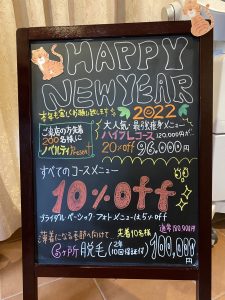 HAPPY
NEW YEAR
本年も宜しくお願い致します
2022
ご来店の方先着
200名様に
ノベルティPresent
大人気!最強痩身メニュー
ハイフレコース 120,000円が、
20%off 96,000円
すべてのコースメニュー
10%off
ブライダル・ベーシック・フォトメニューは5%off
薄着になる季節へ向けて
先着10名様
脱毛
2年
10回保証付
100,000円